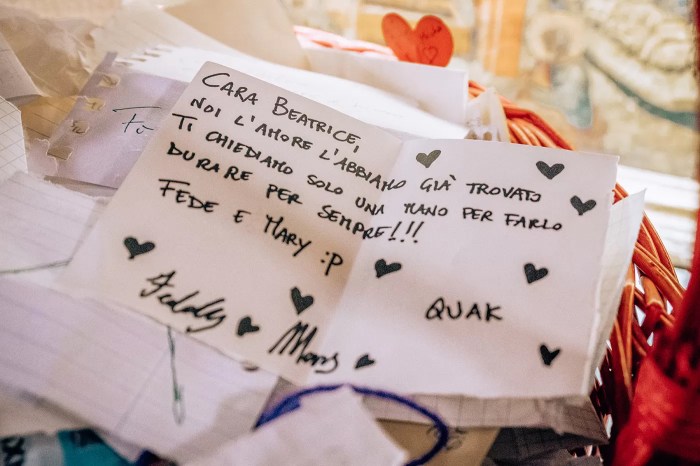 CARA BEATRICE,
NOI L'AMORE L'ABBIAMO GIÀ TROVATO
TI CHIEDIAMO SOLO UNA MANO PER FARLO
DURARE PER SEMPRE!!!
FEDE E MARY :P
QUAK
Feddy
Mary